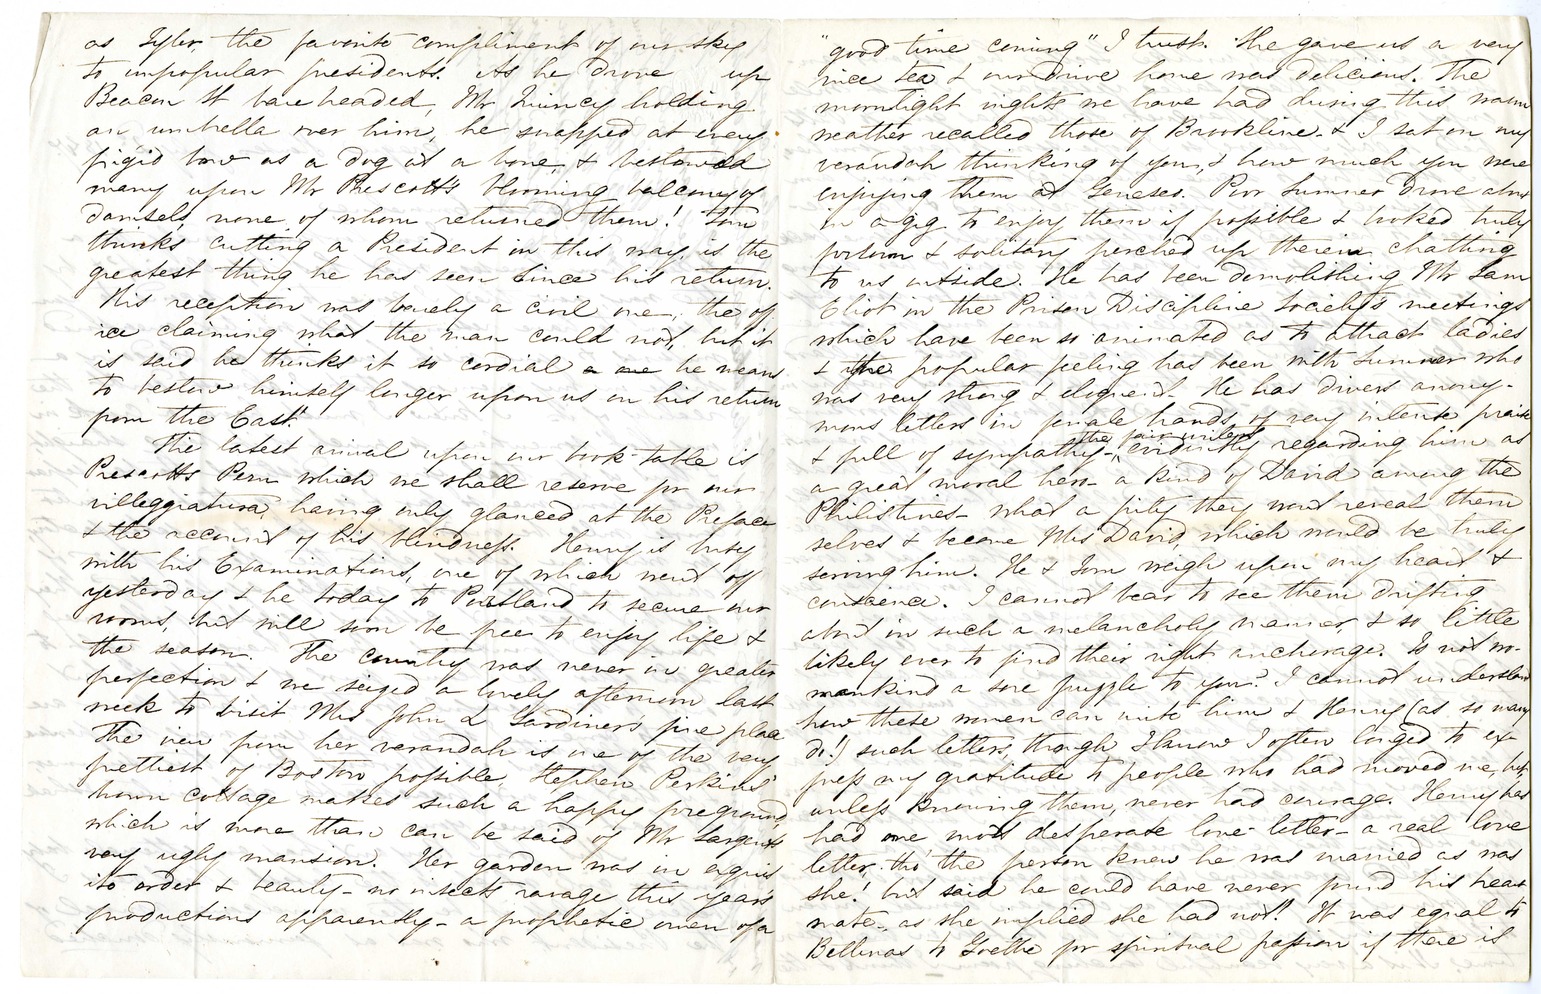 as Tyler, the favorite compliment of our skies
to unpopular presidents. As he drove up
Beacon St bareheaded, Mr Quincy holding
an umbrella over him, he snapped at every
frigid bow as a dog at a bone, & bestowed
many upon Mr Prescott's blooming balcony of
damsels, none of whom returned them! Tom
thinks cutting a President in this way, is the
greatest thing he has seen since his return.
His reception was barely a civil one, the off
ice claiming what the man could not, but it
is said he thinks it so cordial he means
to bestow himself longer upon us on his return
from the East.
The latest arrival upon our book-table is
Prescott's Peru which we shall reserve for our
villeggiatura, having only glanced at the Preface
& the account of his blindness. Henry is busy
with his Examinations, one of which went off
yesterday & he today to Portland to secure our
rooms, but will soon be free to enjoy life &
the season. The country was never in greater
perfection & we seized a lovely afternoon last
week to visit Mrs John L Gardiner's fine place
The view from her verandah is one of the very
prettiest of Boston possible, Stephen Perkins'
brown cottage makes such a happy foreground,
which is more than can be said of Mr Sargent's
very ugly mansion. Her garden was in exquis
ite order & beauty – no insects ravage this year's
productions apparently – a prophetic omen of a
"good time coming" I trust. She gave us a very
nice tea & our drive home was delicious. The
moonlight nights we have had during this warm
weather recalled those of Brookline & I sat on my
verandah thinking of you, & how much you were
enjoying them at Geneseo. Poor Sumner drove alone
in a gig to enjoy them if possible & looked truly
forlorn & solitary perched up therein chatting
to us outside. He has been demolishing Mr Sam
Eliot in the Prison Discipline Society's meetings
which have been so animated as to attract ladies
& the popular feeling has been with Sumner who
was very strong & eloquent. He has divers anony-
mous letters in female hands of very intense praise
& full of sympathy –, the fair writers evidently regarding him as
a great moral hero – a kind of David among the
Philistines – what a pity they wont reveal them
selves & become Mrs David, which would be truly
serving him. He & Tom weigh upon my heart &
conscience. I cannot bear to see them drifting
about in such a melancholy manner, & so little
likely ever to find their right anchorage. Is not wo-
mankind a sore puzzle to you? I cannot understand
how these women can write him & Henry (as so many
do!) such letters, though I know I often longed to ex-
press my gratitude to people who had moved me, but,
unless knowing them, never had courage. Henry has
had one most desperate love-letter – a real love
letter, tho' the person knew he was married as was
she! but said he could have never found his heart
mate, as she implied she had not! It was equal to
Bettinas to Goethe for spiritual passion if there is